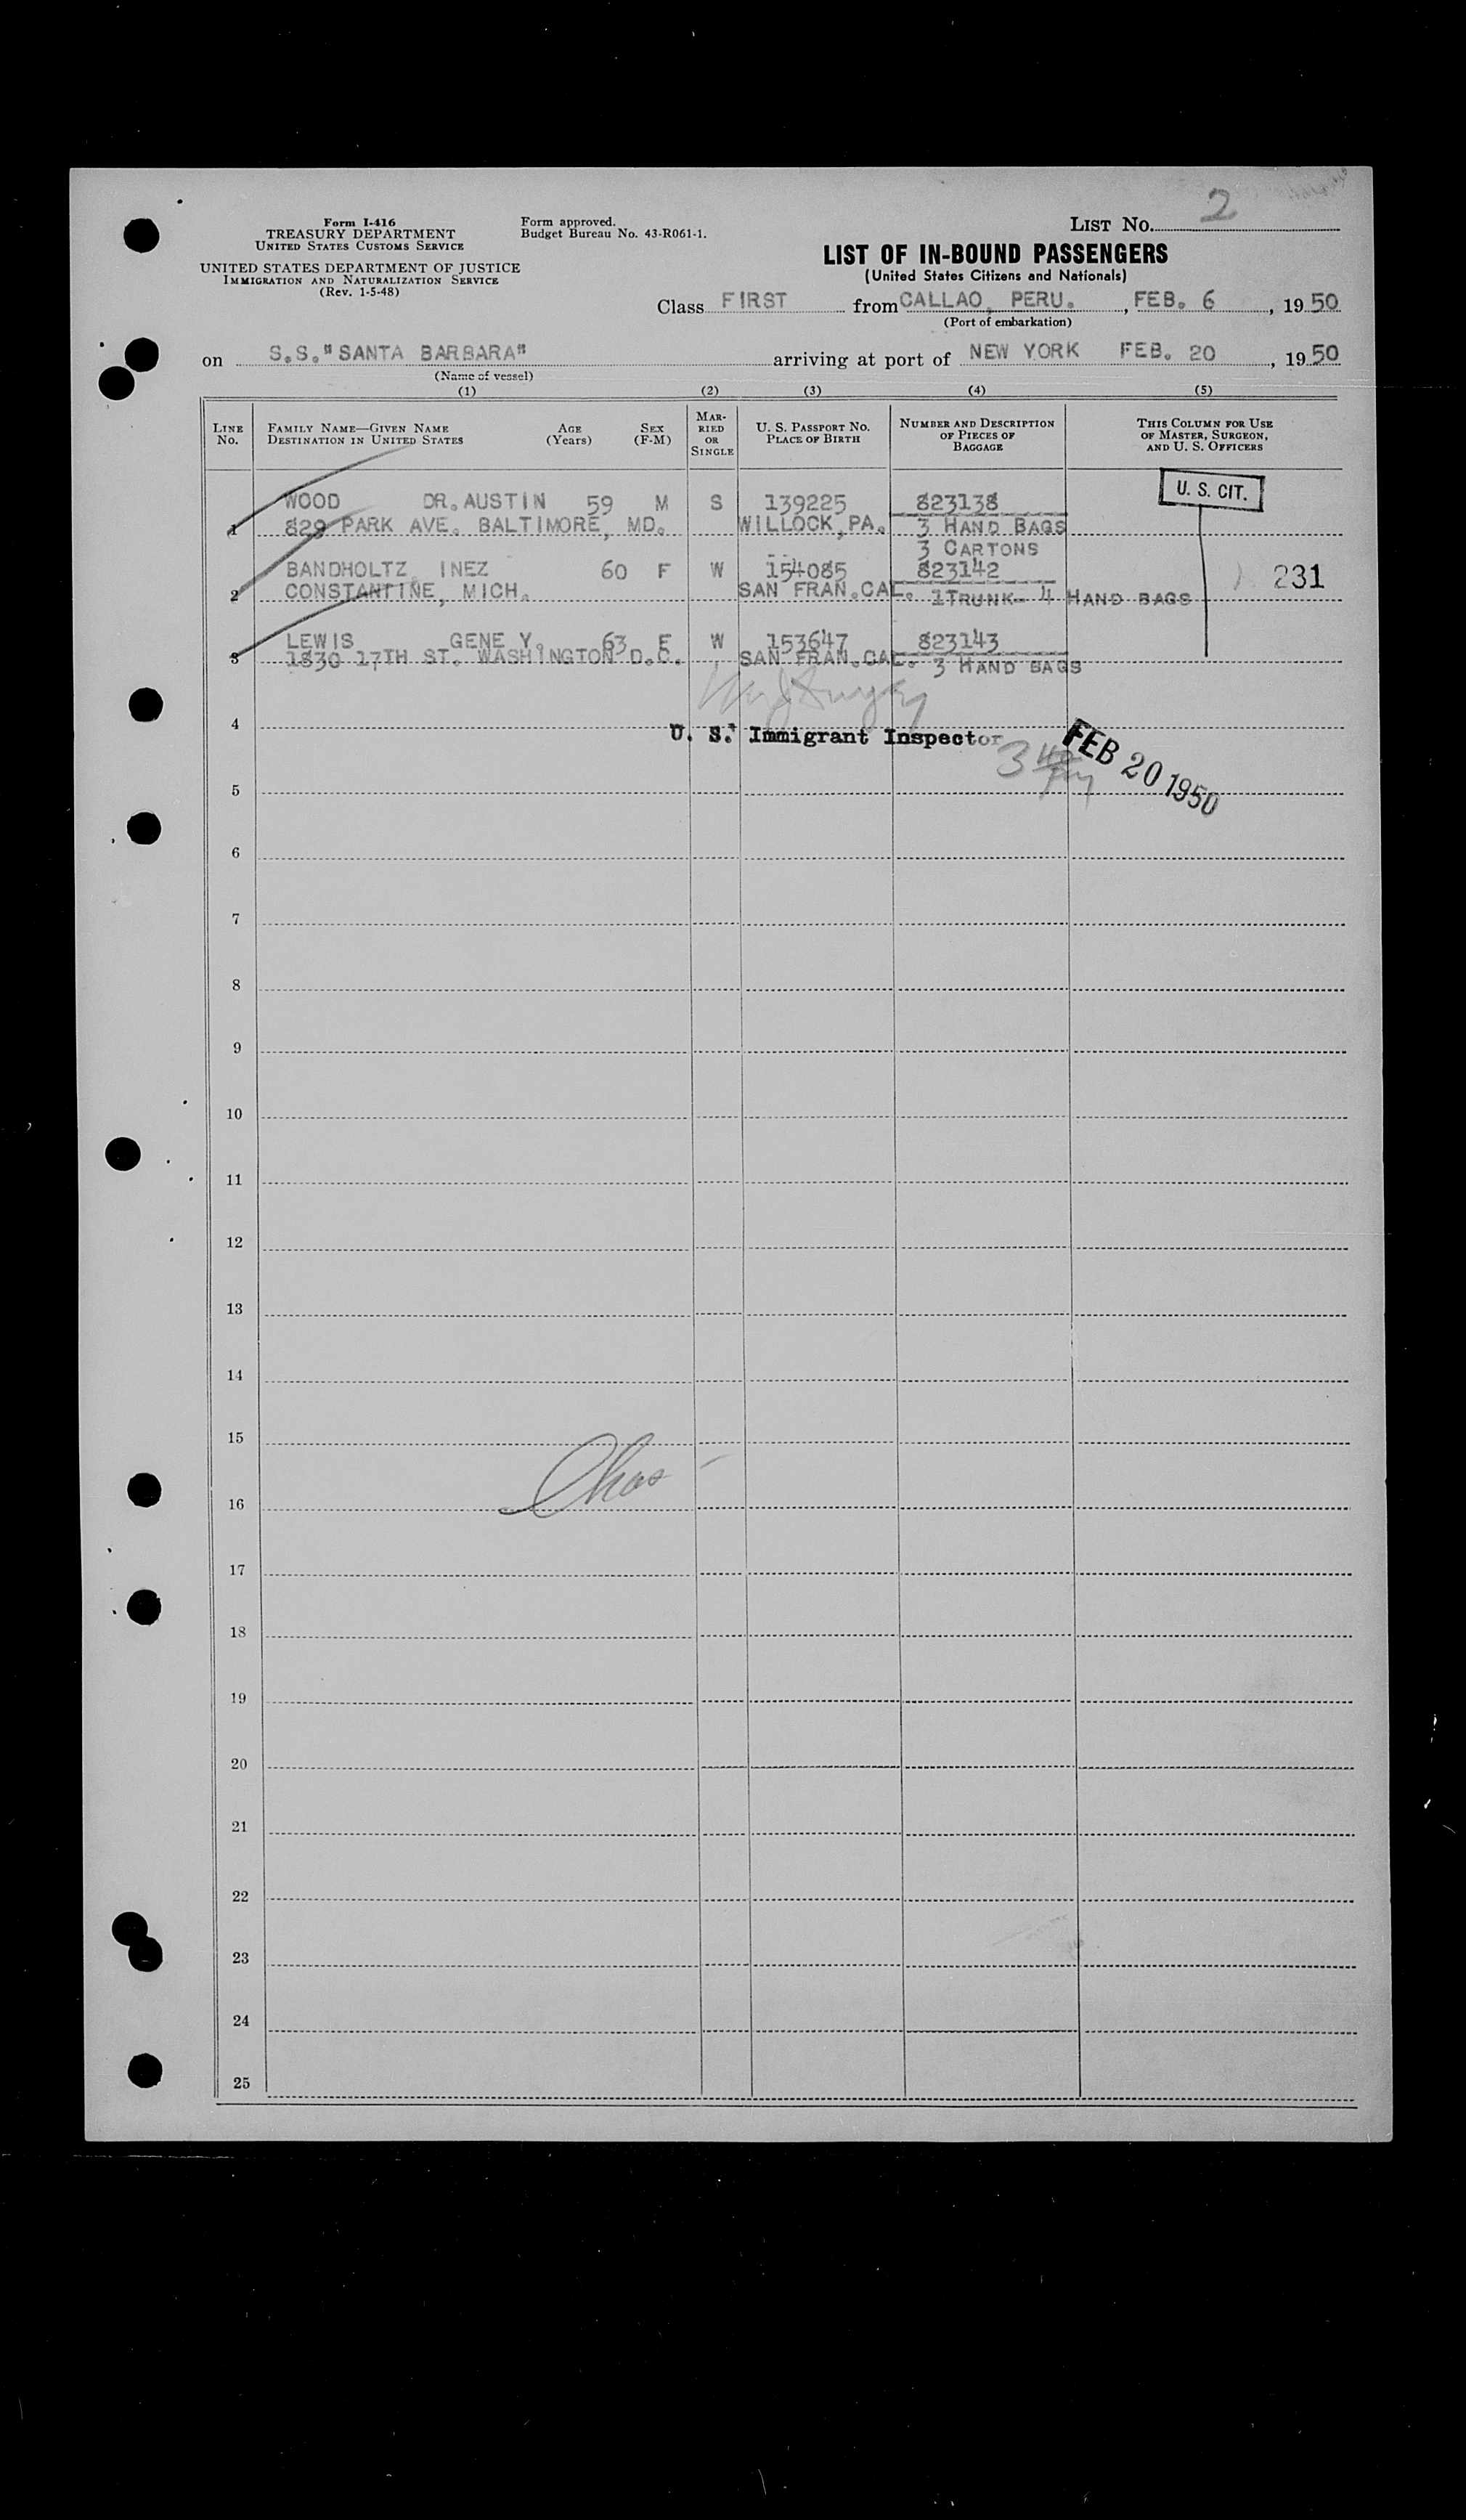 Form I-416
TREASURY DEPARTMENT
UNITED STATES CUSTOMS SERVICE
UNITED STATES DEPARTMENT OF JUSTICE
IMMIGRATION AND NATURALIZATION SERVICE
(Rev. 1-5-48)
Form approved.
Budget Bureau No. 43-R061-1.
LIST No. 2
LIST OF IN-BOUND PASSENGERS
(United States Citizens and Nationals)
Class FIRST from CALLAO, PERU. , FEB. 6 , 1950
(Port of embarkation)
on S.S."SANTA BARBARA" arriving at port of NEW YORK FEB. 20 , 1950
(Name of vessel)
(1) (2) (3) (4) (5)
LINE No. FAMILY NAME—GIVEN NAME DESTINATION IN UNITED STATES AGE (Years) SEX (F-M) MARRIED OR SINGLE U. S. PASSPORT NO. PLACE OF BIRTH NUMBER AND DESCRIPTION OF PIECES OF BAGGAGE THIS COLUMN FOR USE OF MASTER, SURGEON, AND U. S. OFFICERS
U. S. CIT.
WOOD DR. AUSTIN 59 M S 139225 823138
1 829 PARK AVE. BALTIMORE, MD. WILLOCK, PA. 3 HAND BAGS
3 CARTONS
BANDHOLTZ INEZ 60 F W 154085 823142 231
2 CONSTANTINE, MICH. SAN FRAN.CAL. 1TRUNK- 4 HAND BAGS
LEWIS GENE Y. 63 F W 153647 823143
3 1830 17TH ST. WASHINGTON D.C. SAN FRAN.CAL. 3 HAND BAGS
4
U. S. Immigrant Inspector
FEB 20 1950
5
6
7
8
9
10
11
12
13
14
15
Chas
16
17
18
19
20
21
22
23
24
25